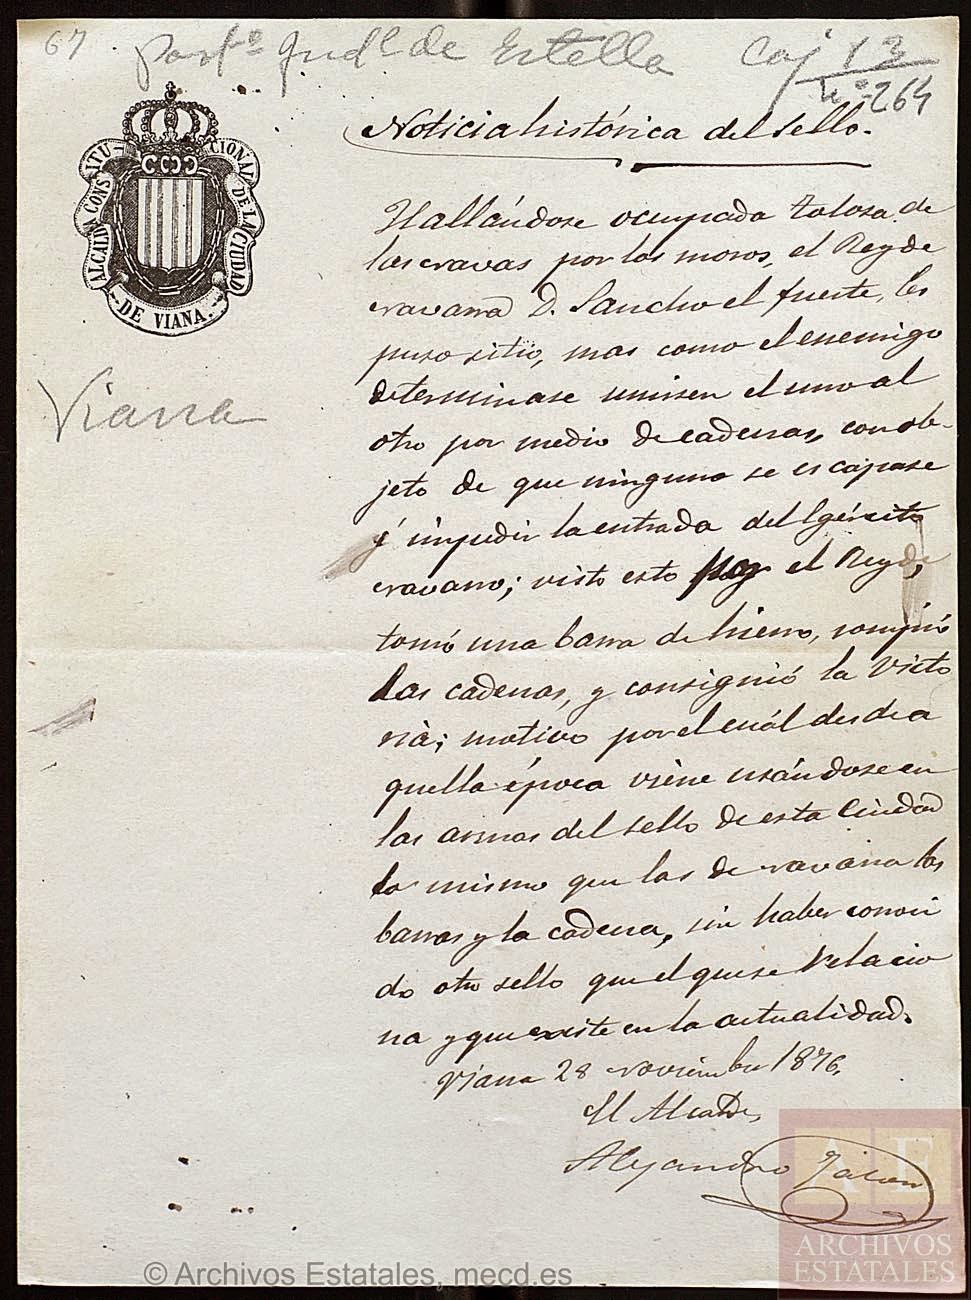 67
Part.º Jud.l de Estella Caj 13
n.º 264
ALCALDIA CONSTITUCIONAL DE LA CIUDAD
DE VIANA.
Noticia histórica del sello.
Viana
Hallándose ocupada Tolosa de
las navas por los moros, el Rey de
navarra D. Sancho el fuerte, les
puso sitio, mas como el enemigo
determinase unirsen el uno al
otro por medio de cadenas, con ob-
jeto de que ninguno se escapase
é impedir la entrada del Egército
navarro; visto esto por el Rey,
tomó una barra de hierro, rompió
las cadenas, y consignió la victo
ria; motivo por el cuál desde a
quella época viene usándose en
las armas del sello de esta Ciudad
lo mismo que las de navarra las
barras y la cadena, sin haber conoci
do otro sello que el que se relacio
na y que existe en la actualidad.
Viana 28 noviembre 1876.
El Alcalde,
Alejandro
© Archivos Estatales, mecd.es
AE
ARCHIVOS
ESTATALES